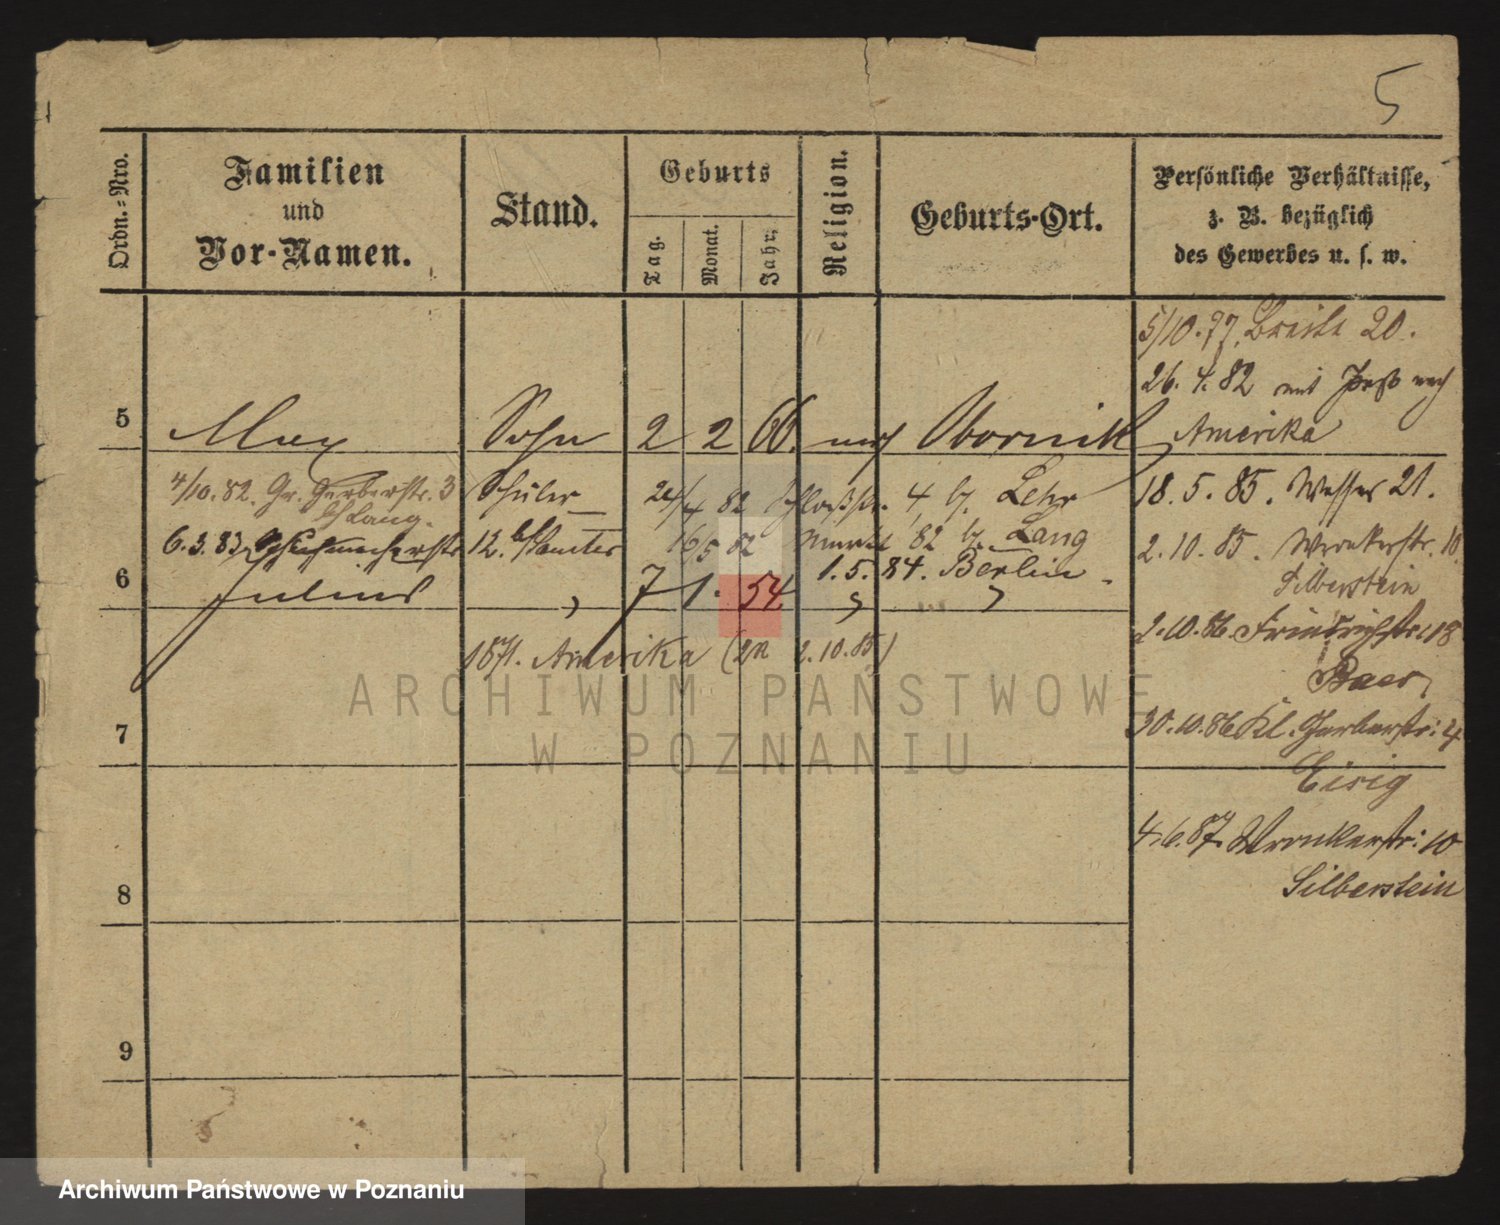 5
Ordn.-Nro.
Familien
und
Vor-Namen.
Stand.
Geburts
Tag.
Monat.
Jahr.
Religion.
Geburts-Ort.
Persönliche Verhältnisse,
z. B. bezüglich
des Gewerbes u. s. w.
5/10.77. Breite 20.
26. 4. 82 mit Paß nach
Amerika
5 Max Sohn 2 2 66. mos Obornik
4/10. 82. Gr. Gerberstr. 3
b/ Lang.
Schüler 24/4 82 Schloßstr. 4 b. Lehr
18. 5. 85. Wasser 21.
6. 3. 83 Schuhmacherstr 12. b/ 16/5 82 82 b. Lang
1. 5. 84. Berlin.
2. 10. 85. Wronkerstr. 10
Silberstein
6 Julius " 7 1. 54 " "
1871. Amerika (2.10.85)
2.10.86. Friedrichstr. 18
Baer
30.10.86 Kl. Gerberstr: 4
Eisig
4.6.87. Wronkerstr: 10
Silberstein
7
8
9
ARCHIWUM PAŃSTWOWE
W POZNANIU
Archiwum Państwowe w Poznaniu